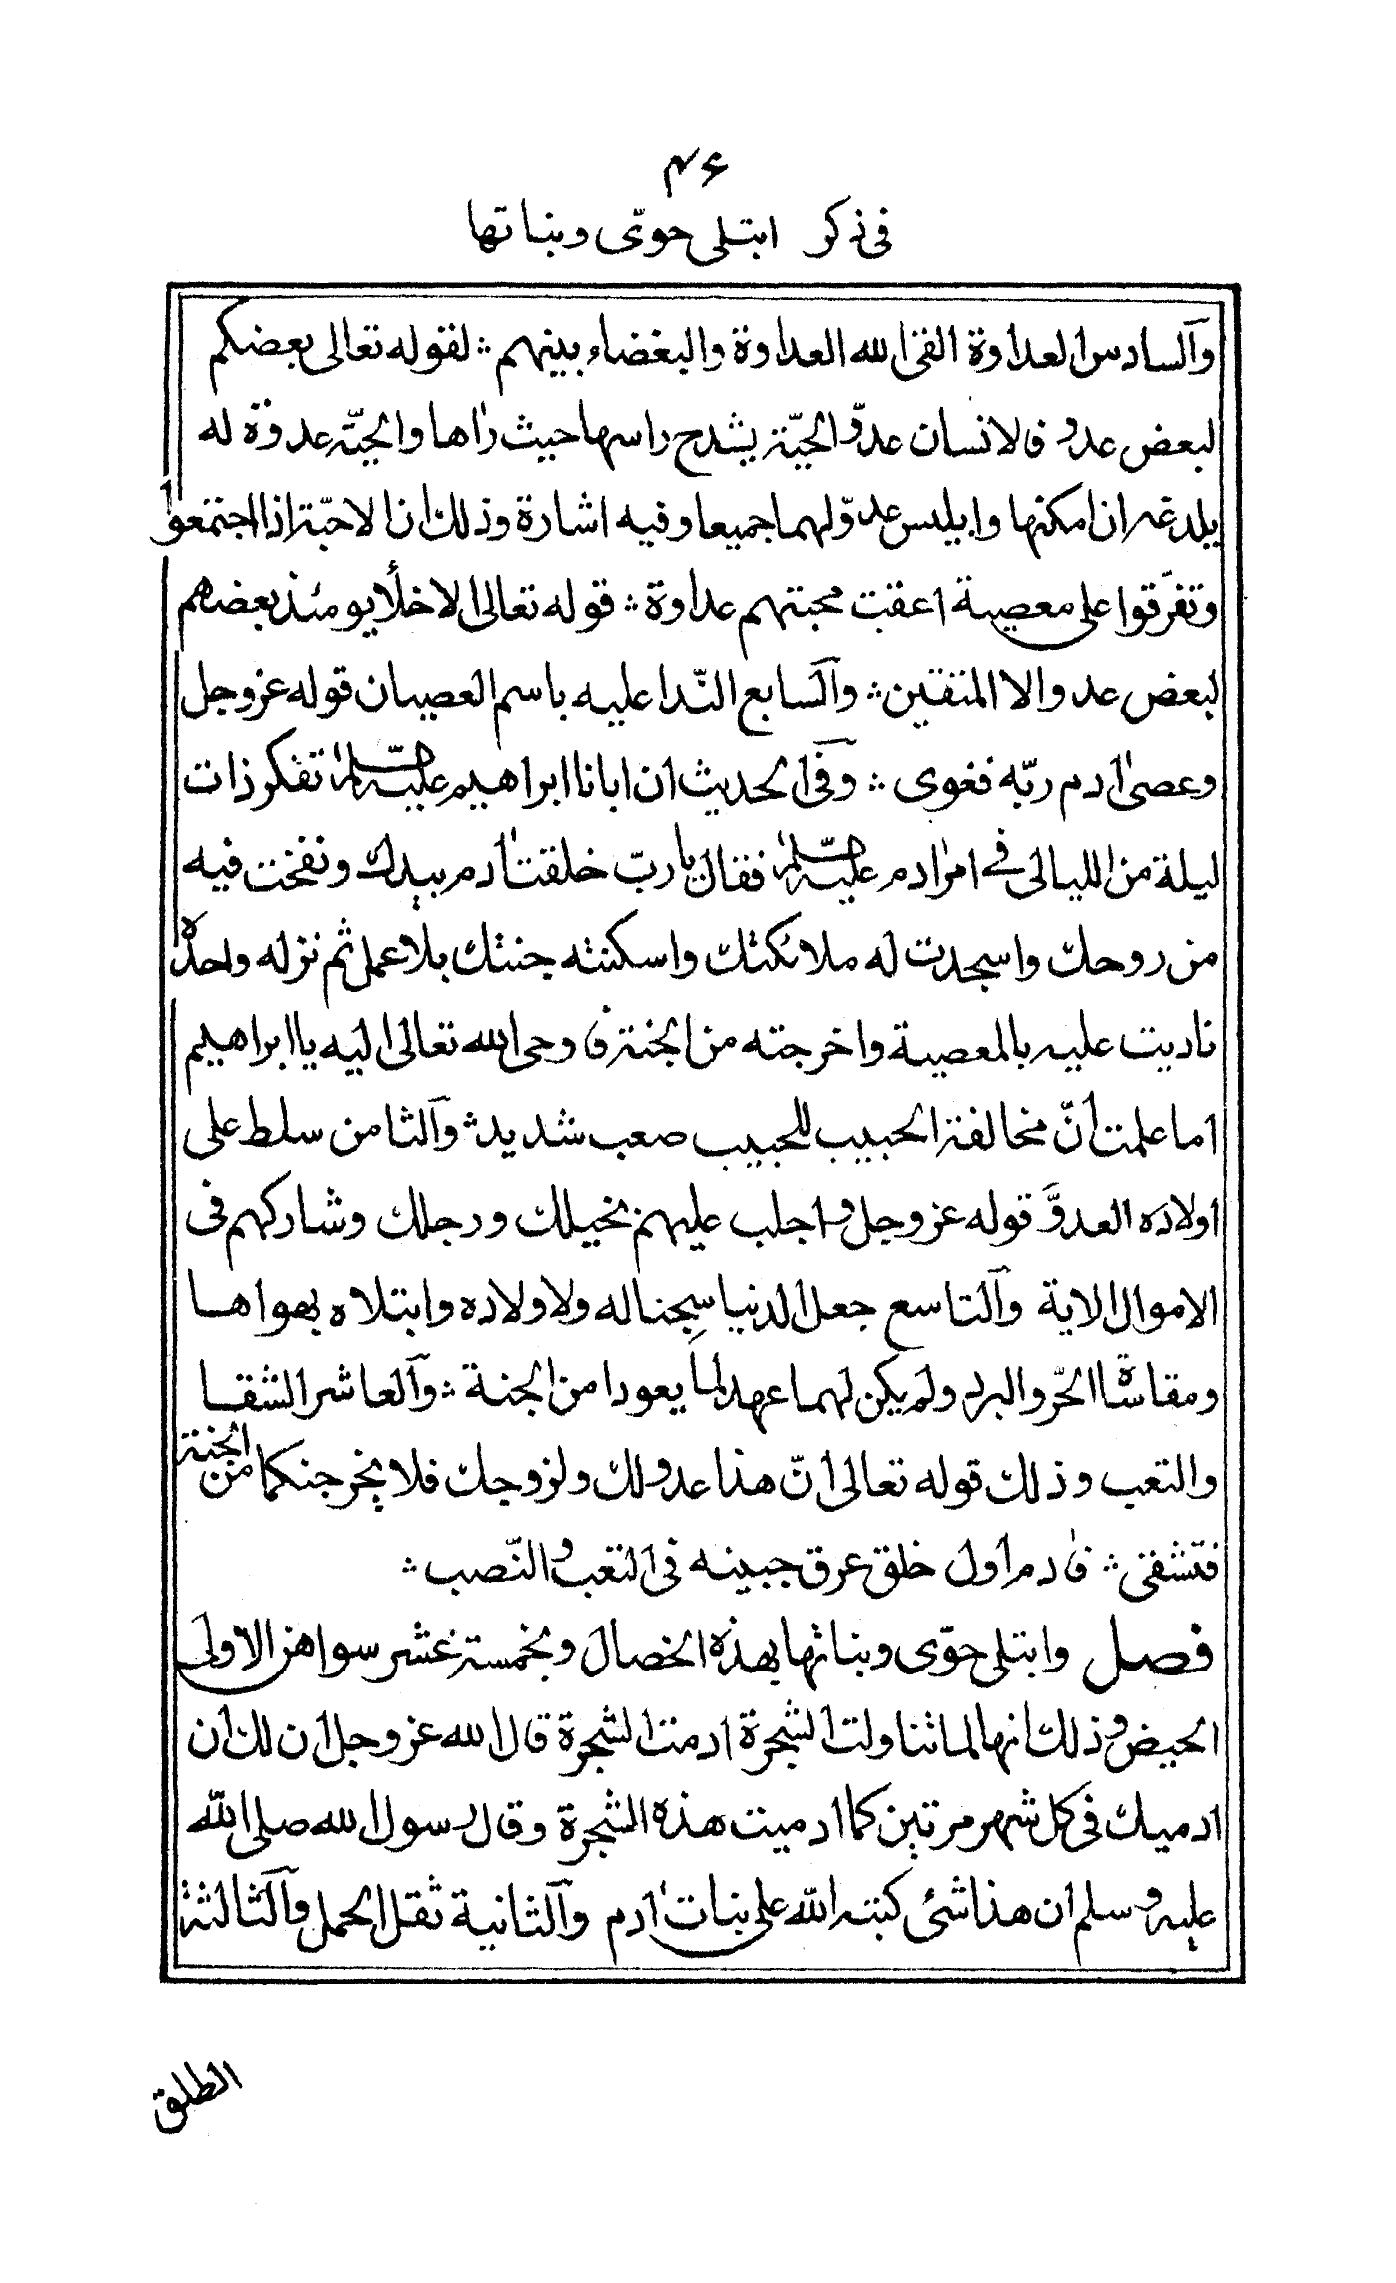 ۴۶
فى ذكر ابتلى حوّى وبناتها
وآلسادس العداوة القى الله العداوة والبغضاء بينهم ؞ لقوله تعالى بعضكم
لبعض عدو فالانسان عدوّ الحيّة يشدح راسها حيث رٰاها والحيّة عدوة له
يلدغه ان امكنها وابليس عدوّ لهما جميعا وفيه اشارة وذلك ان الاحبّة اذا اجتمعوا
وتفرّقوا على معصية اعقبت محبتهم عداوة ؞ قوله تعالى الاخلّا يومئذ بعضهم
لبعض عدو الا المتقين ؞ وآلسابع النّدا عليه باسم العصيان قوله عز وجل
وعصىٰ اٰدم ربّه فغوى ؞ وفى الحديث ان ابانا ابراهيم عليه السّلم تفكر ذات
ليلة من الليالى فے امر اٰدم عليه السّلم فقال يا ربّ خلقت اٰدم بيدك ونفخت فيه
من روحك واسجدت له ملائكتك واسكنته جنتك بلا عمل ثم نزله واحدة
ناديت عليه بالمعصية واخرجته من الجنة فاوحى الله تعالى اليه يا ابراهيم
اما علمت أنّ مخالفة الحبيب للحبيب صعب شديد ؞ وآلثامن سلط على
اولاده العدوّ قوله عز وجل واجلب عليهم بخيلك ورجلك وشاركهم فى
الاموال الاية وآلتاسع جعل الدنيا سِجنا له ولاولاده وابتلاه بهواها
ومقاساة الحّر والبرد ولم يكن لهما عهد لما يعودا من الجنة ؞ وآلعاشر الشقا
والتعب وذلك قوله تعالى أنّ هذا عدو لك ولزوجك فلا يخرجنكما من الجنة
فتشقى ؞ فاٰدم اول خلق عرق جبينه فى التعب والنّصب ؞
فصل وابتلى حوّى وبناتها بهذه الخصال وبخمسة عشر سواهن الاولى
الحيض وذلك انها لما تناولت الشجرة ادمت الشجرة قال الله عز وجل ان لك ان
ادميك فى كل شهر مرتين كما ادميت هذه الشجرة وقال رسول الله صلى الله
عليه وسلم ان هذا شئ كتبه الله على بنات اٰدم وآلثانية ثقل الحمل وآلثالثة
الطلق